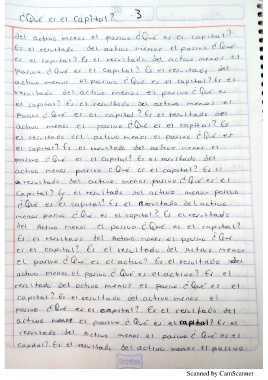 ¿Qué es el Capital? 3
del activo menos el pasivo ¿Qué es el capital?
Es el resultado del activo menos el pasivo ¿Qué
es el capital? Es el resultado del activo menos el
pasivo ¿Qué es el capital? Es el resultado del
activo menos el pasivo ¿Qué es el capital? Es el
resultado del activo menos el pasivo ¿Qué es
el capital? Es el resultado del activo menos el
pasivo ¿Qué es el capital? Es el resultado del
activo menos el pasivo ¿Qué es el capital? Es
el resultado del activo menos el pasivo ¿Qué es
el capital? Es el resultado del activo menos el
pasivo ¿Qué es el capital? Es el resultado del
activo menos pasivo ¿Qué es el capital? Es el
resultado del activo menos pasivo ¿Qué es el
Capital? Es el resultado del activo menos pasivo
¿Qué es el capital? Es el resultado del activo
menos pasivo ¿Qué es el capital? Es el resultado
del Activo menos el pasivo ¿Qué es el capital?
Es el resultado del activo menos el pasivo ¿Qué
es el capital? Es el resultado del activo menos
el pasivo ¿Qué es el activo? Es el resultado del
activo menos el pasivo ¿Qué es el activo? Es el
resultado del activo menos el pasivo ¿Qué es el
capital? Es el resultado del activo menos el
pasivo ¿Qué es el capital? Es el resultado del
activo menos el pasivo ¿Qué es el capital? Es el
resultado del activo menos el pasivo ¿Qué es el
capital? Es el resultado del activo menos el pasivo
Scribe
Scanned by CamScanner